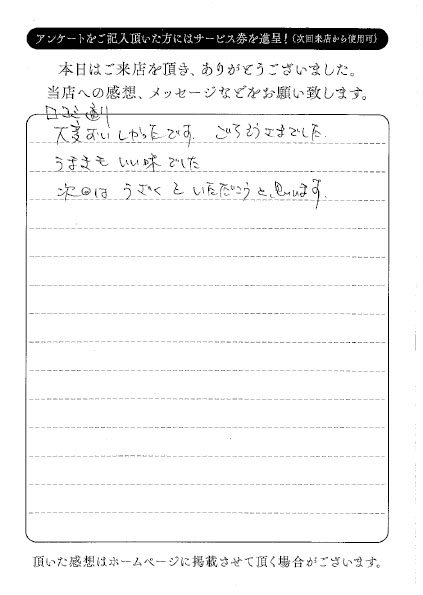 アンケートをご記入頂いた方にはサービス券を進呈！（次回来店から使用可）
本日はご来店を頂き、ありがとうございました。
当店への感想、メッセージなどをお願い致します。
口コミ通り
大変おいしかったです。ごちそうさまでした。
うまきも いい味でした
次回は うざくを いただこうと思います。
頂いた感想はホームページに掲載させて頂く場合がございます。